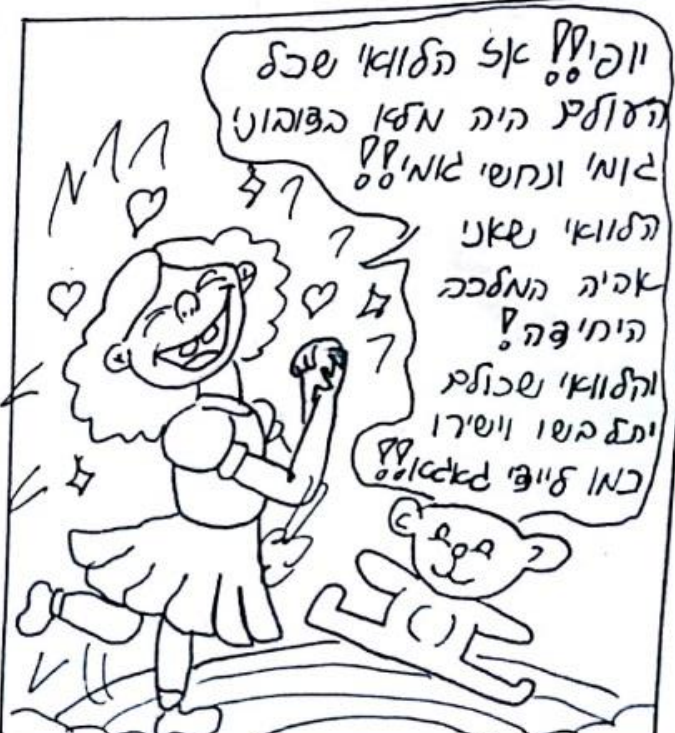 יופי!! אז הלוואי שכל
העולם היה מלא בדובוני
גומי ונחשי גומי!!
הלוואי שאני
אהיה המלכה
היחידה!
והלוואי שכולם
יתלבשו וישירו
כמו ליידי גאגא!!